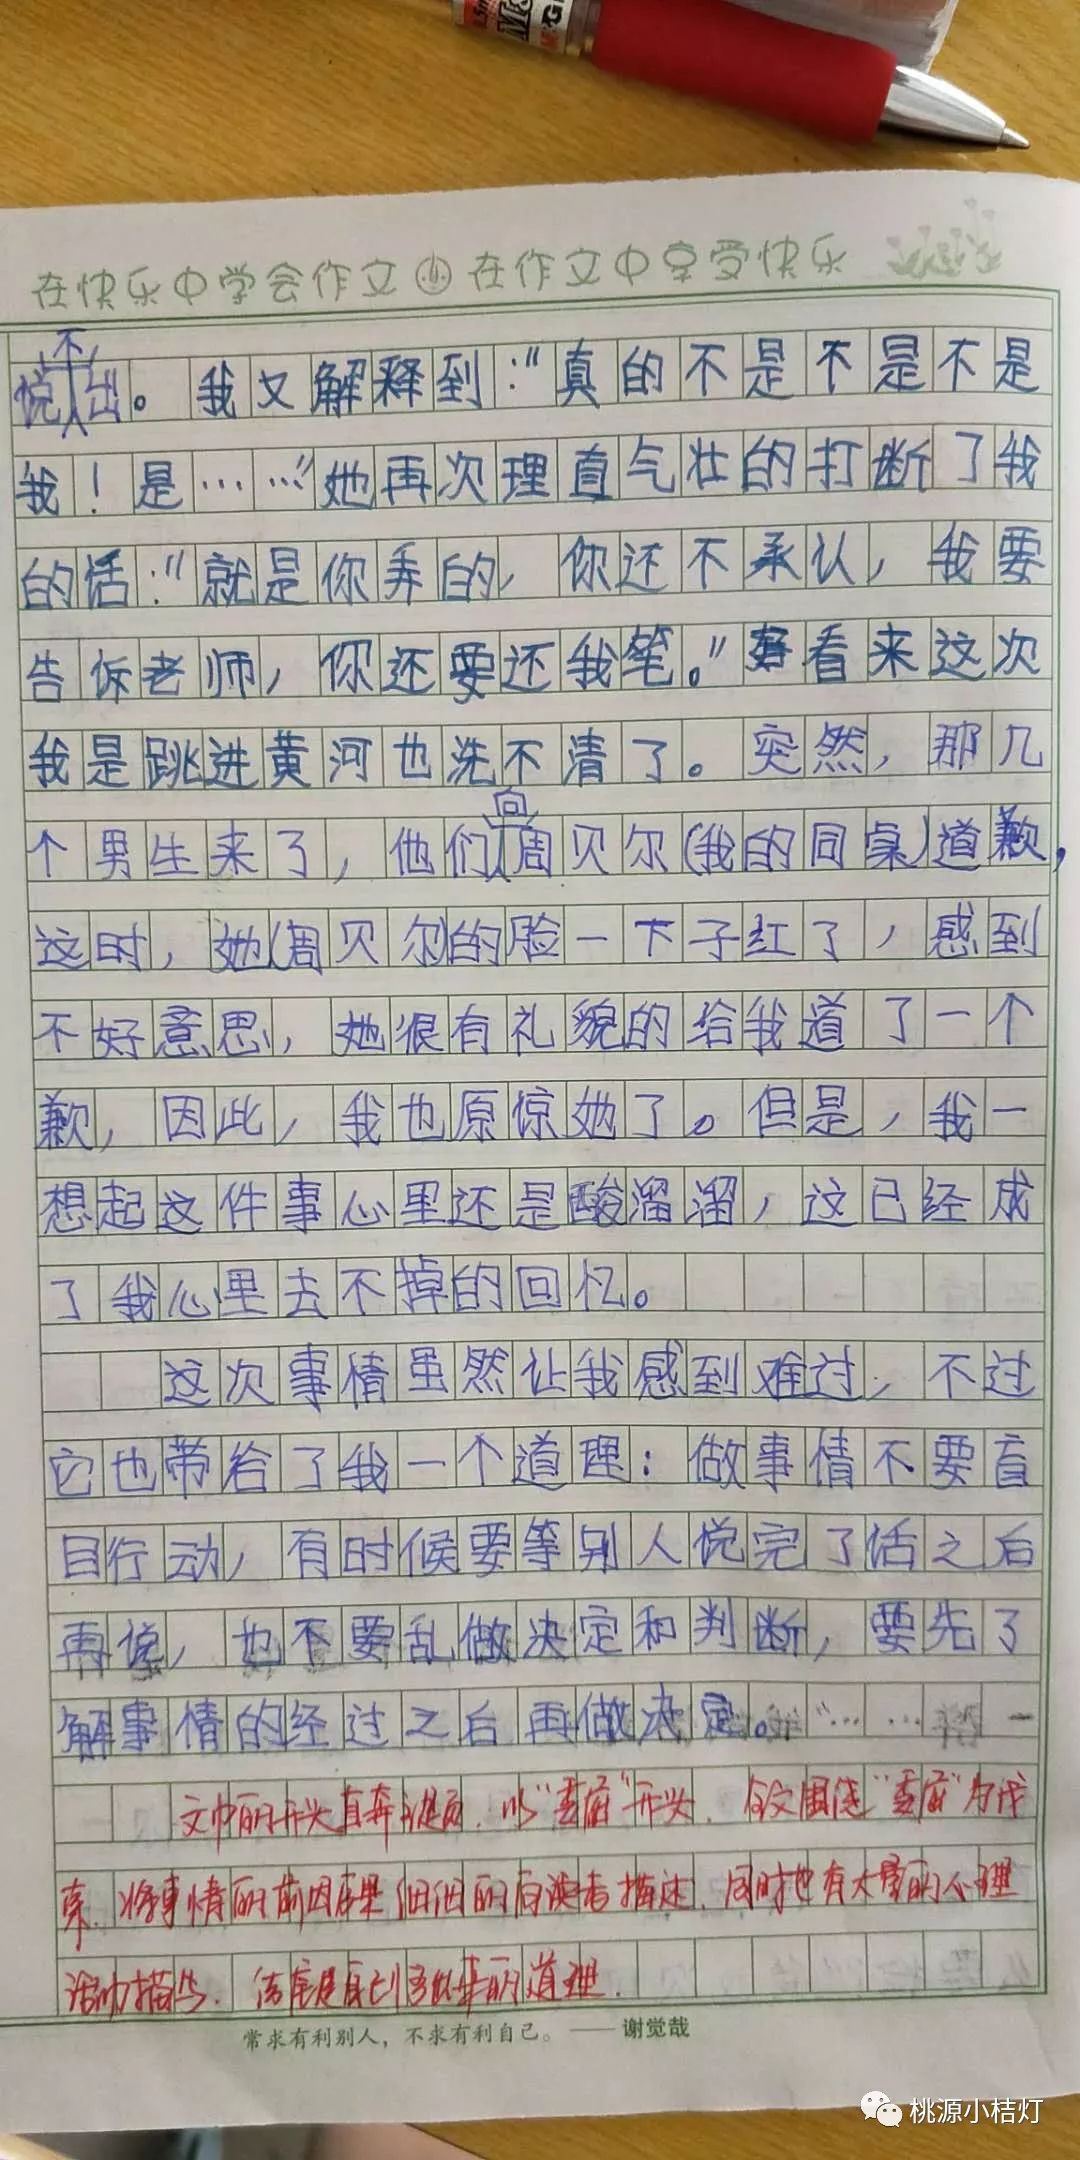 在快乐中学会作文 在作文中享受快乐
说不出。我又解释到:"真的不是不是不是
我!是……"她再次理直气壮的打断了我
的话:"就是你弄的,你还不承认,我要
告诉老师,你还要还我笔。"看来这次
我是跳进黄河也洗不清了。突然,那几
个男生来了,他们向周贝尔(我的同桌)道歉,
这时,她(周贝尔)的脸一下子红了,感到
不好意思,她很有礼貌的给我道了一个
歉,因此,我也原惊她了。但是,我一
想起这件事心里还是酸溜溜,这已经成
了我心里去不掉的回忆。
这次事情虽然让我感到难过,不过
它也带给了我一个道理:做事情不要盲
目行动,有时候要等别人说完了话之后
再说,也不要乱做决定和判断,要先了
解事情的经过之后再做决定。……
文中的开头直奔主题,以"委屈"开头,全文围绕"委屈"为线
索,将事情的前因后果细细的向读者描述,同时也有大量的心理
活动描写,结尾是自己的道理.
常求有利别人,不求有利自己。——谢觉哉
桃源小桔灯